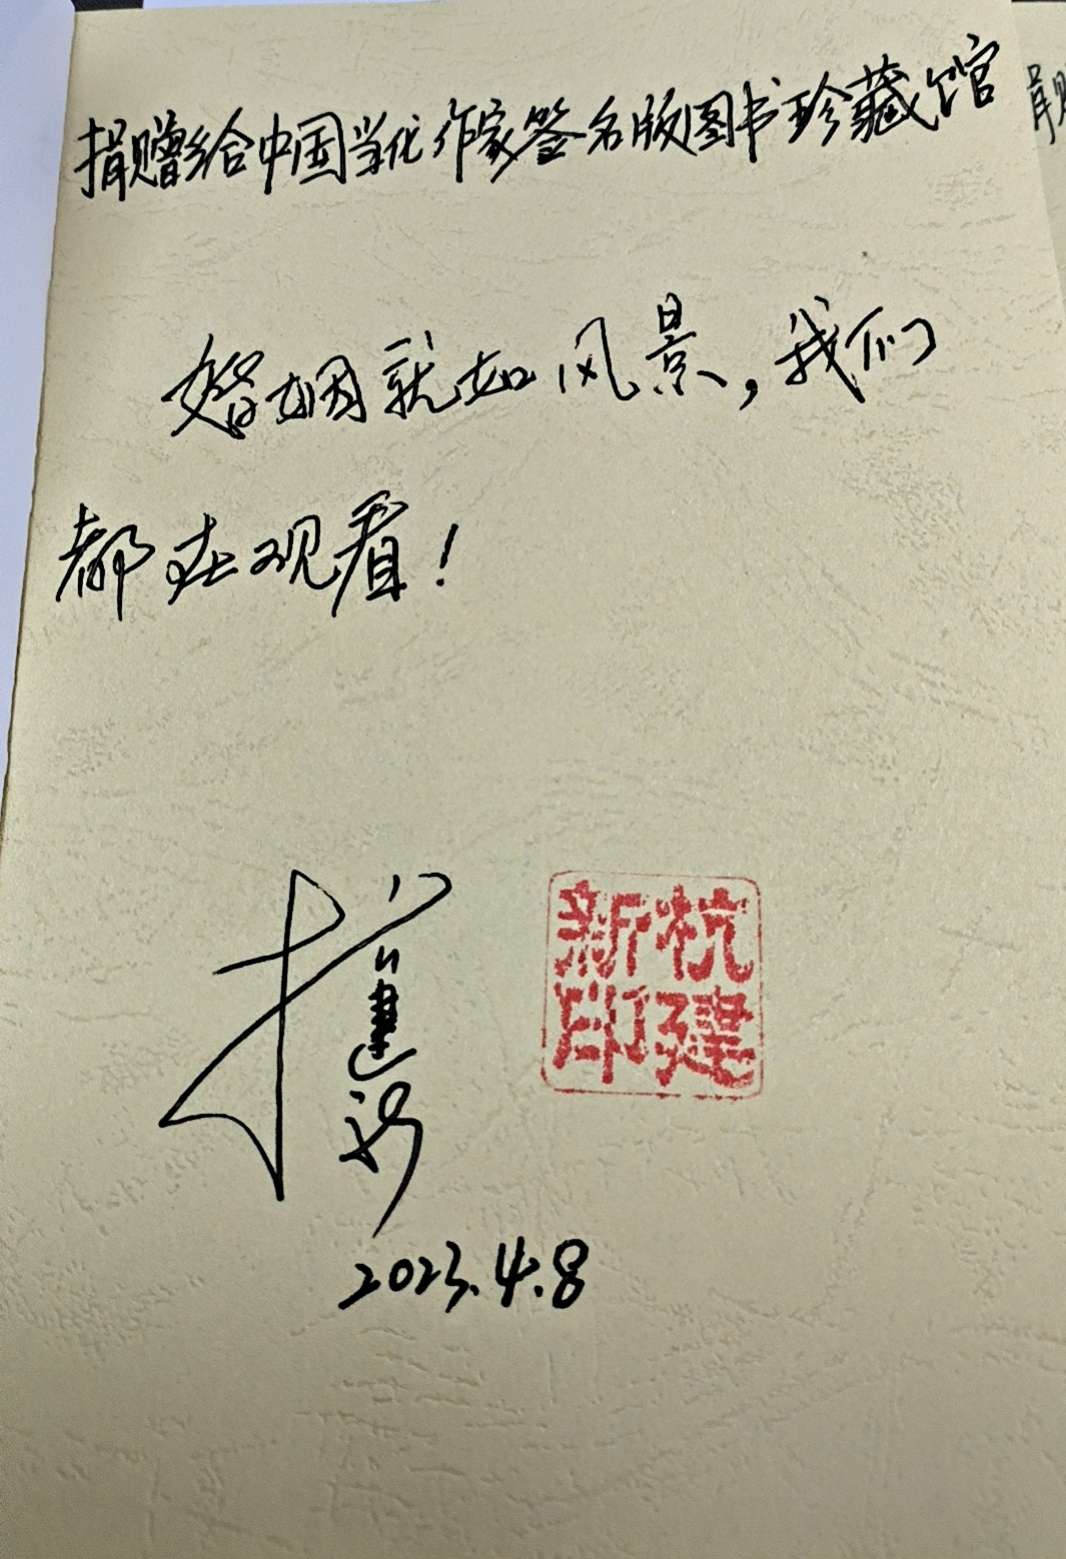 捐赠给中国当代作家签名版图书珍藏馆
婚姻就如风景，我们
都在观看！
杭建新
杭建
新印
2023.4.8
捐